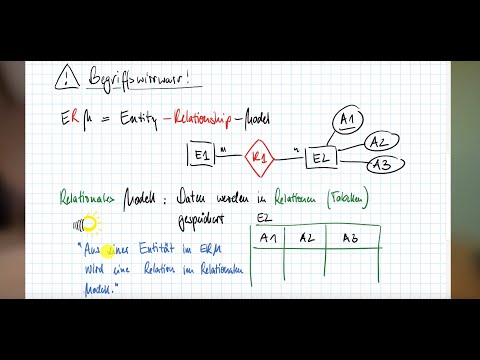 Begriffswirrwarr!
ERM = Entity-Relationship-Modell
A1
E1 m R1 n E2 A2
A3
Relationales Modell: Daten werden in Relationen (Tabellen)
gespeichert
E2
A1 A2 A3
"Aus einer Entität im ERM
wird eine Relation im Relationalen
Modell."